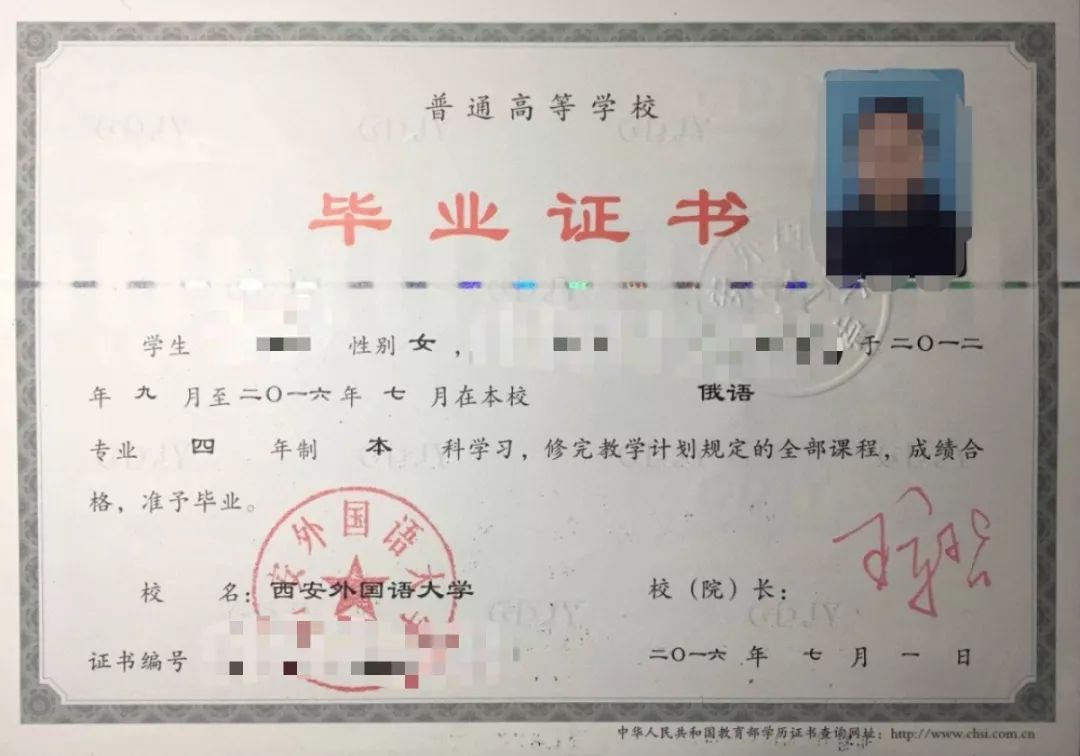 普通高等学校
毕业证书
学生 性别 女， 于 二〇一二
年 九 月至 二〇一六 年 七 月在本校 俄语
专业 四 年制 本 科学习，修完教学计划规定的全部课程，成绩合
格，准予毕业。
校 名：西安外国语大学 校（院）长：
证书编号 二〇一六 年 七 月 一 日
中华人民共和国教育部学历证书查询网址：http://www.chsi.com.cn